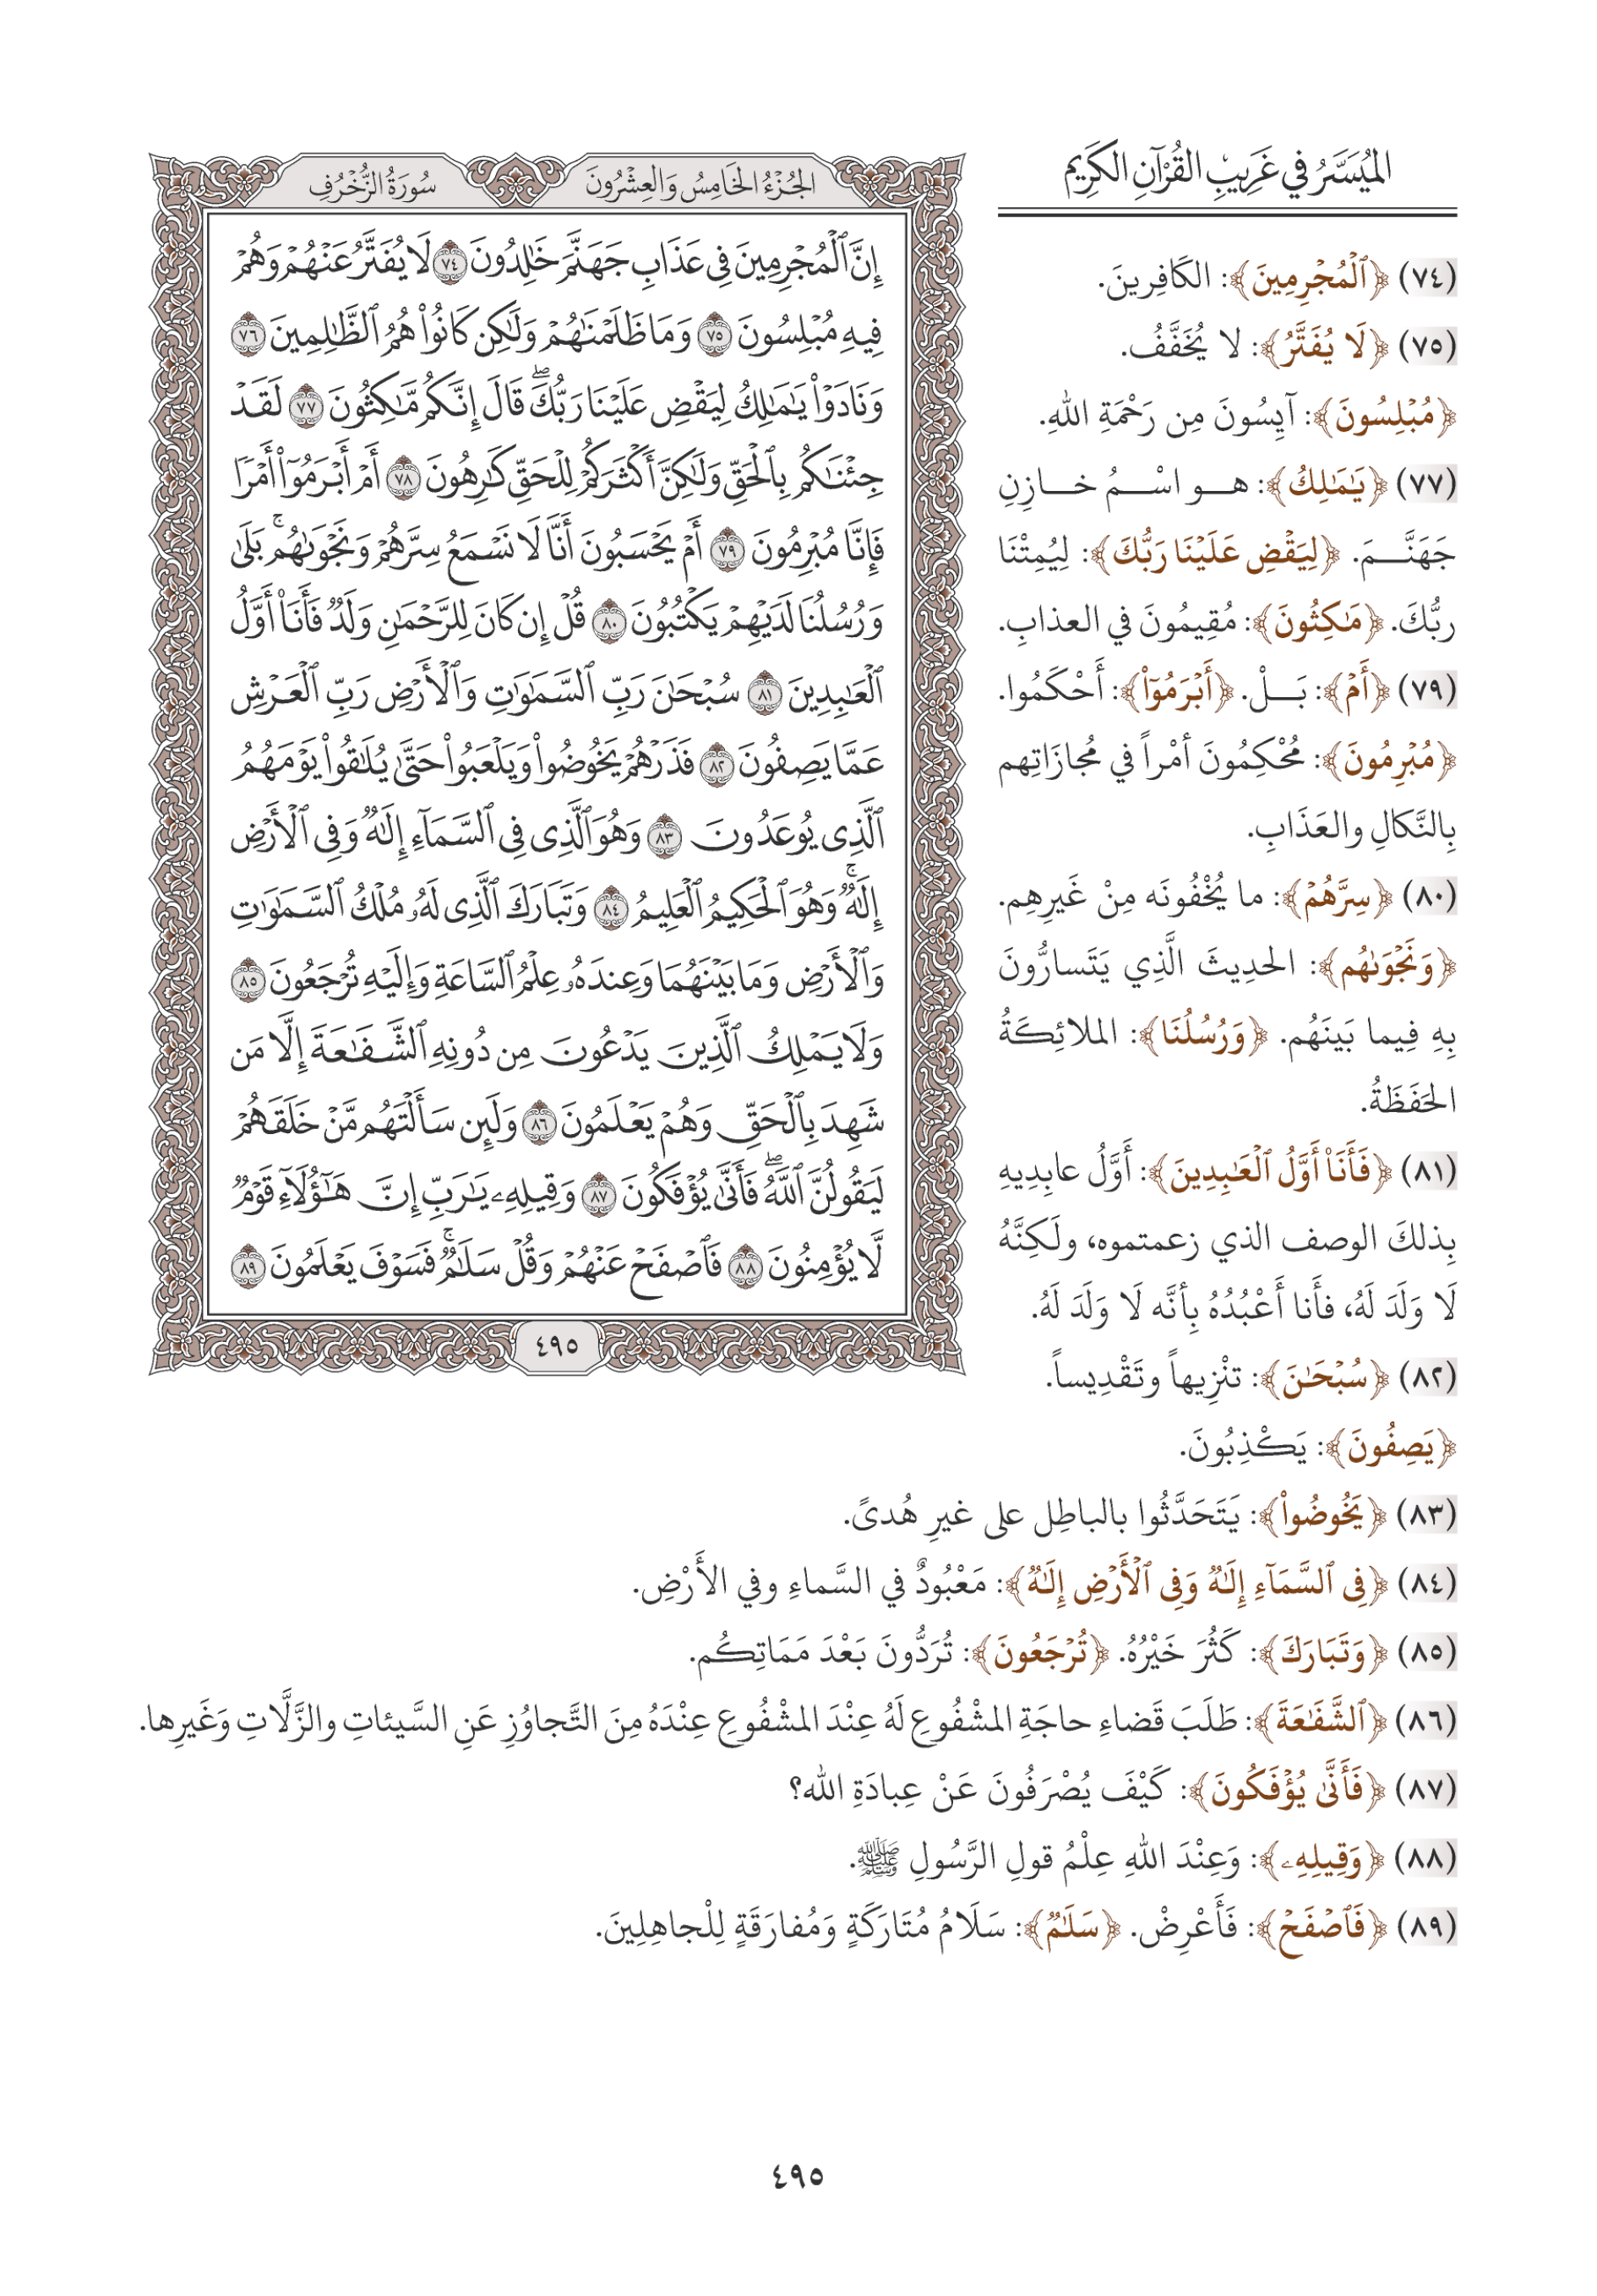 الميُسَّرُ في غَرِيبِ القُرْآنِ الكَرِيم
الجُزْءُ الخَامِسُ وَالعِشْرُونَ
سُورَةُ الزُّخْرُفِ
إِنَّ ٱلْمُجْرِمِينَ فِى عَذَابِ جَهَنَّمَ خَٰلِدُونَ ٧٤ لَا يُفَتَّرُ عَنْهُمْ وَهُمْ
فِيهِ مُبْلِسُونَ ٧٥ وَمَا ظَلَمْنَٰهُمْ وَلَٰكِن كَانُوا۟ هُمُ ٱلظَّٰلِمِينَ ٧٦
وَنَادَوْا۟ يَٰمَٰلِكُ لِيَقْضِ عَلَيْنَا رَبُّكَ ۖ قَالَ إِنَّكُم مَّٰكِثُونَ ٧٧ لَقَدْ
جِئْنَٰكُم بِٱلْحَقِّ وَلَٰكِنَّ أَكْثَرَكُمْ لِلْحَقِّ كَٰرِهُونَ ٧٨ أَمْ أَبْرَمُوٓا۟ أَمْرًا
فَإِنَّا مُبْرِمُونَ ٧٩ أَمْ يَحْسَبُونَ أَنَّا لَا نَسْمَعُ سِرَّهُمْ وَنَجْوَىٰهُم ۚ بَلَىٰ
وَرُسُلُنَا لَدَيْهِمْ يَكْتُبُونَ ٨٠ قُلْ إِن كَانَ لِلرَّحْمَٰنِ وَلَدٌ فَأَنَا۠ أَوَّلُ
ٱلْعَٰبِدِينَ ٨١ سُبْحَٰنَ رَبِّ ٱلسَّمَٰوَٰتِ وَٱلْأَرْضِ رَبِّ ٱلْعَرْشِ
عَمَّا يَصِفُونَ ٨٢ فَذَرْهُمْ يَخُوضُوا۟ وَيَلْعَبُوا۟ حَتَّىٰ يُلَٰقُوا۟ يَوْمَهُمُ
ٱلَّذِى يُوعَدُونَ ٨٣ وَهُوَ ٱلَّذِى فِى ٱلسَّمَآءِ إِلَٰهٌ وَفِى ٱلْأَرْضِ
إِلَٰهٌ ۚ وَهُوَ ٱلْحَكِيمُ ٱلْعَلِيمُ ٨٤ وَتَبَارَكَ ٱلَّذِى لَهُۥ مُلْكُ ٱلسَّمَٰوَٰتِ
وَٱلْأَرْضِ وَمَا بَيْنَهُمَا وَعِندَهُۥ عِلْمُ ٱلسَّاعَةِ وَإِلَيْهِ تُرْجَعُونَ ٨٥
وَلَا يَمْلِكُ ٱلَّذِينَ يَدْعُونَ مِن دُونِهِ ٱلشَّفَٰعَةَ إِلَّا مَن
شَهِدَ بِٱلْحَقِّ وَهُمْ يَعْلَمُونَ ٨٦ وَلَئِن سَأَلْتَهُم مَّنْ خَلَقَهُمْ
لَيَقُولُنَّ ٱللَّهُ ۖ فَأَنَّىٰ يُؤْفَكُونَ ٨٧ وَقِيلِهِۦ يَٰرَبِّ إِنَّ هَٰٓؤُلَآءِ قَوْمٌ
لَّا يُؤْمِنُونَ ٨٨ فَٱصْفَحْ عَنْهُمْ وَقُلْ سَلَٰمٌ ۚ فَسَوْفَ يَعْلَمُونَ ٨٩
٤٩٥
(٧٤) ﴿ٱلْمُجْرِمِينَ﴾: الكَافِرِينَ.
(٧٥) ﴿لَا يُفَتَّرُ﴾: لا يُخَفَّفُ.
﴿مُبْلِسُونَ﴾: آيِسُونَ مِن رَحْمَةِ اللهِ.
(٧٧) ﴿يَٰمَٰلِكُ﴾: هو اسْمُ خازِنِ
جَهَنَّمَ. ﴿لِيَقْضِ عَلَيْنَا رَبُّكَ﴾: لِيُمِتْنَا
ربُّكَ. ﴿مَٰكِثُونَ﴾: مُقِيمُونَ في العذابِ.
(٧٩) ﴿أَمْ﴾: بَلْ. ﴿أَبْرَمُوٓا۟﴾: أَحْكَمُوا.
﴿مُبْرِمُونَ﴾: مُحْكِمُونَ أمْراً في مُجازَاتِهم
بِالنَّكالِ والعَذَابِ.
(٨٠) ﴿سِرَّهُمْ﴾: ما يُخْفُونَه مِنْ غَيرِهِم.
﴿وَنَجْوَىٰهُم﴾: الحديثَ الَّذِي يَتَسارُّونَ
بِهِ فِيما بَينَهُم. ﴿وَرُسُلُنَا﴾: الملائِكَةُ
الحَفَظَةُ.
(٨١) ﴿فَأَنَا۠ أَوَّلُ ٱلْعَٰبِدِينَ﴾: أَوَّلُ عابِدِيهِ
بِذلكَ الوصف الذي زعمتموه، ولَكِنَّهُ
لَا وَلَدَ لَهُ، فأَنا أَعْبُدُهُ بِأنَّه لَا وَلَدَ لَهُ.
(٨٢) ﴿سُبْحَٰنَ﴾: تنْزِيهاً وتَقْدِيساً.
﴿يَصِفُونَ﴾: يَكْذِبُونَ.
(٨٣) ﴿يَخُوضُوا۟﴾: يَتَحَدَّثُوا بالباطِل على غيرِ هُدىً.
(٨٤) ﴿فِى ٱلسَّمَآءِ إِلَٰهٌ وَفِى ٱلْأَرْضِ إِلَٰهٌ﴾: مَعْبُودٌ في السَّماءِ وفي الأَرْضِ.
(٨٥) ﴿وَتَبَارَكَ﴾: كَثُرَ خَيْرُهُ. ﴿تُرْجَعُونَ﴾: تُرَدُّونَ بَعْدَ مَمَاتِكُم.
(٨٦) ﴿ٱلشَّفَٰعَةَ﴾: طَلَبَ قَضاءِ حاجَةِ المشْفُوعِ لَهُ عِنْدَ المشْفُوعِ عِنْدَهُ مِنَ التَّجاوُزِ عَنِ السَّيئاتِ والزَّلَّاتِ وَغَيرِها.
(٨٧) ﴿فَأَنَّىٰ يُؤْفَكُونَ﴾: كَيْفَ يُصْرَفُونَ عَنْ عِبادَةِ الله؟
(٨٨) ﴿وَقِيلِهِۦ﴾: وَعِنْدَ اللهِ عِلْمُ قولِ الرَّسُولِ ﷺ.
(٨٩) ﴿فَٱصْفَحْ﴾: فَأَعْرِضْ. ﴿سَلَٰمٌ﴾: سَلَامُ مُتَارَكَةٍ وَمُفارَقَةٍ لِلْجاهِلِينَ.
٤٩٥